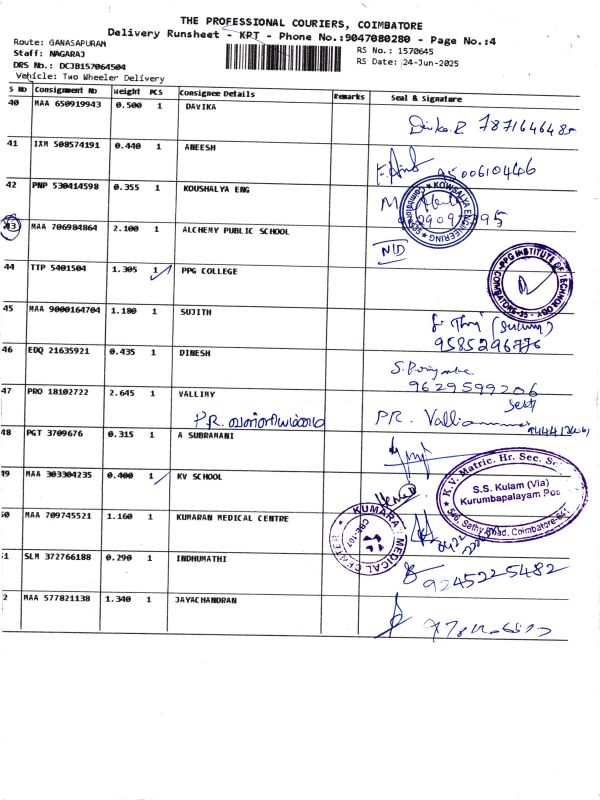 THE PROFESSIONAL COURIERS, COIMBATORE
Delivery Runsheet - KPT - Phone No.:9047080280 - Page No.:4
Route: GANASAPURAM
Staff: NAGARAJ
DRS No.: DCJB157064504
Vehicle: Two Wheeler Delivery
RS No.: 1570645
RS Date: 24-Jun-2025
S No Consignment No Weight PCS Consignee Details Remarks Seal & Signature
40 MAA 650919943 0.500 1 DAVIKA
41 IXM 508574191 0.440 1 ANEESH
9500610406
42 PNP 530414598 0.355 1 KOUSHALYA ENG
KOWSALYA ENGINEERING
43 MAA 706984864 2.100 1 ALCHEMY PUBLIC SCHOOL
NID
44 TTP 5401504 1.305 1 PPG COLLEGE
PPG INSTITUTE OF TECHNOLOGY COIMBATORE-35
45 MAA 9000164704 1.180 1 SUJITH
9585296776
46 EDQ 21635921 0.435 1 DINESH
9629599206
47 PRO 18102722 2.645 1 VALLIMY
PR. Valliammai
48 PGT 3709676 0.315 1 A SUBRAMANI
49 MAA 303304235 0.400 1 KV SCHOOL
K.V. Matric. Hr. Sec.
S.S. Kulam (Via)
Kurumbapalayam Pos
Sathy Road, Coimbatore-641
50 MAA 709745521 1.160 1 KUMARAN MEDICAL CENTRE
KUMARAN MEDICAL CENTRE
CBE-107
51 SLM 372766188 0.290 1 INDHUMATHI
9245225482
52 MAA 577821138 1.340 1 JAYACHANDRAN